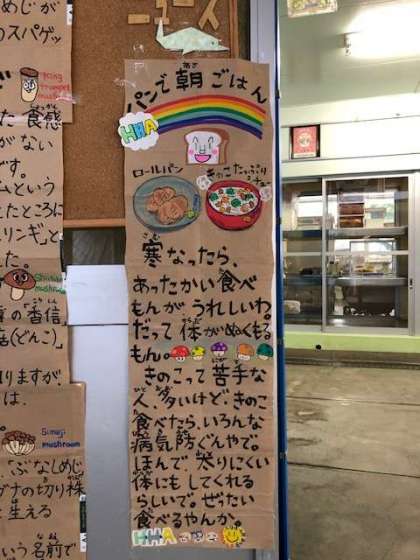 ニュース
パンで朝ごはん
あさ
HHA
ロールパン
きのこたっぷり
さむ
寒なったら、
あったかい食べ
もんがうれしいわ。
だって体がぬくもる
もん。
きのこって苦手な
人、多いけど、きのこ
食べたら、いろんな
病気防ぐんやで。
ほんで、太りにくい
体にもしてくれる
らしいで。ぜったい
食べるやんか。
HHA
めじが
のスパゲッ
King
trumpet
mushroom
た食感
がない
です。
ムという
たところに
リンギ」と
た。
Shiitake
mushroom
の香信
店(どんこ)
りますが
は、
Simeji
mushroom
ぶなしめじ
ブナの切り株
に生える
いう名前で